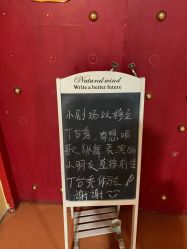 Natural wind
Write a better future
小剧场以移至
T台秀，有想唱
歌、跳舞、表演的
小朋友直接前往
T台秀体验！
谢谢